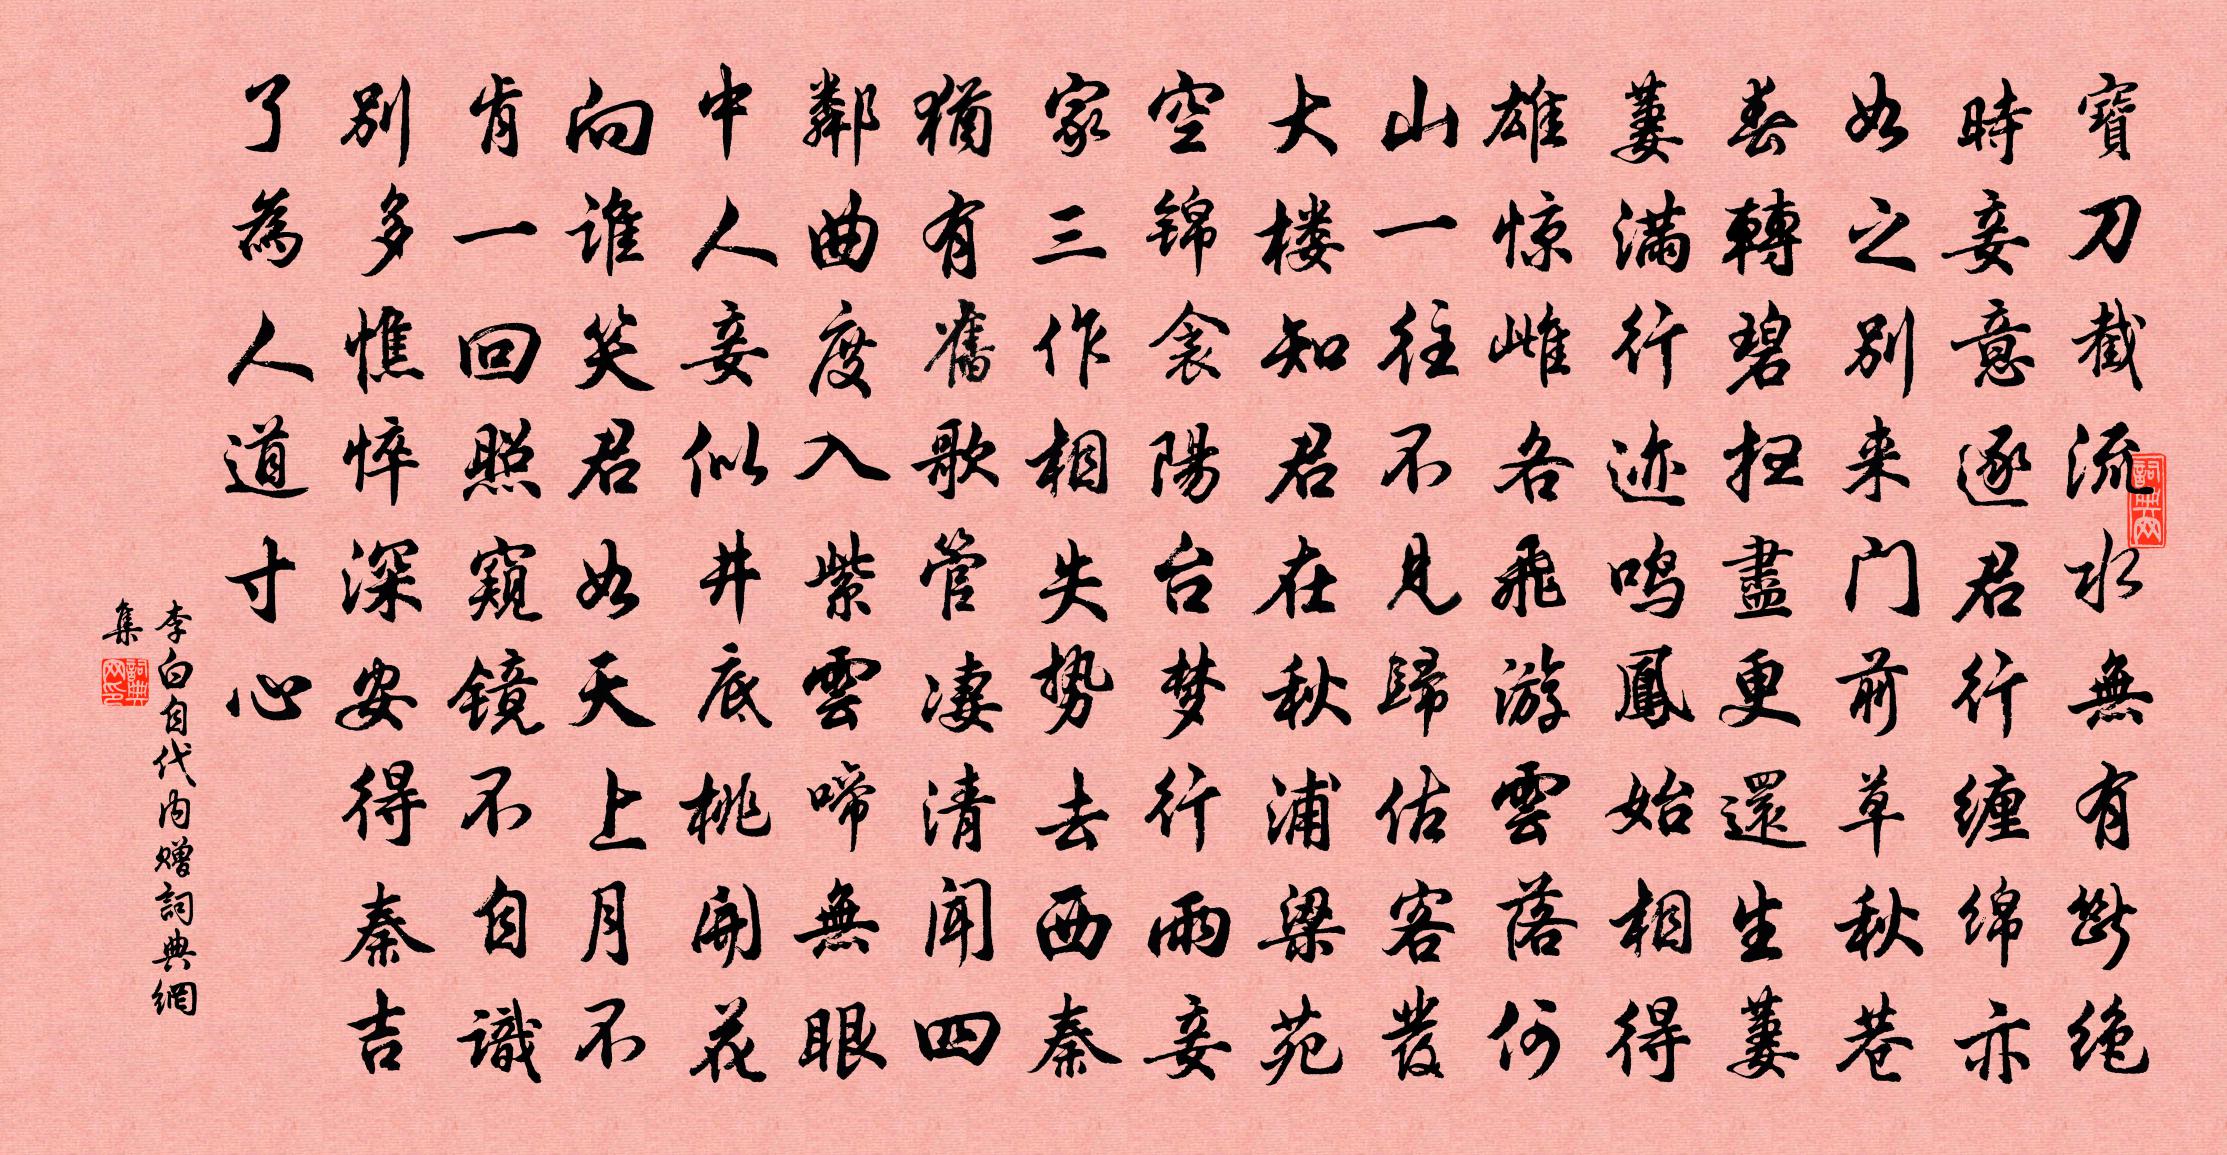 寶刀截流水無有斷绝
時妾意逐君行缠绵亦
如之别来门前草秋巷
春轉碧扫盡更還生萋
萋满行迹鸣鳳始相得
雄惊雌各飛游雲落何
山一往不见歸估客發
大楼知君在秋浦梁苑
空锦衾陽台梦行雨妾
家三作相失势去西秦
猶有舊歌管凄清闻四
鄰曲度入紫雲啼無眼
中人妾似井底桃開花
向谁笑君如天上月不
肯一回照窥镜不自識
别多憔悴深安得秦吉
了為人道寸心
李白自代内赠詞典網
集
詞典网
詞典网印